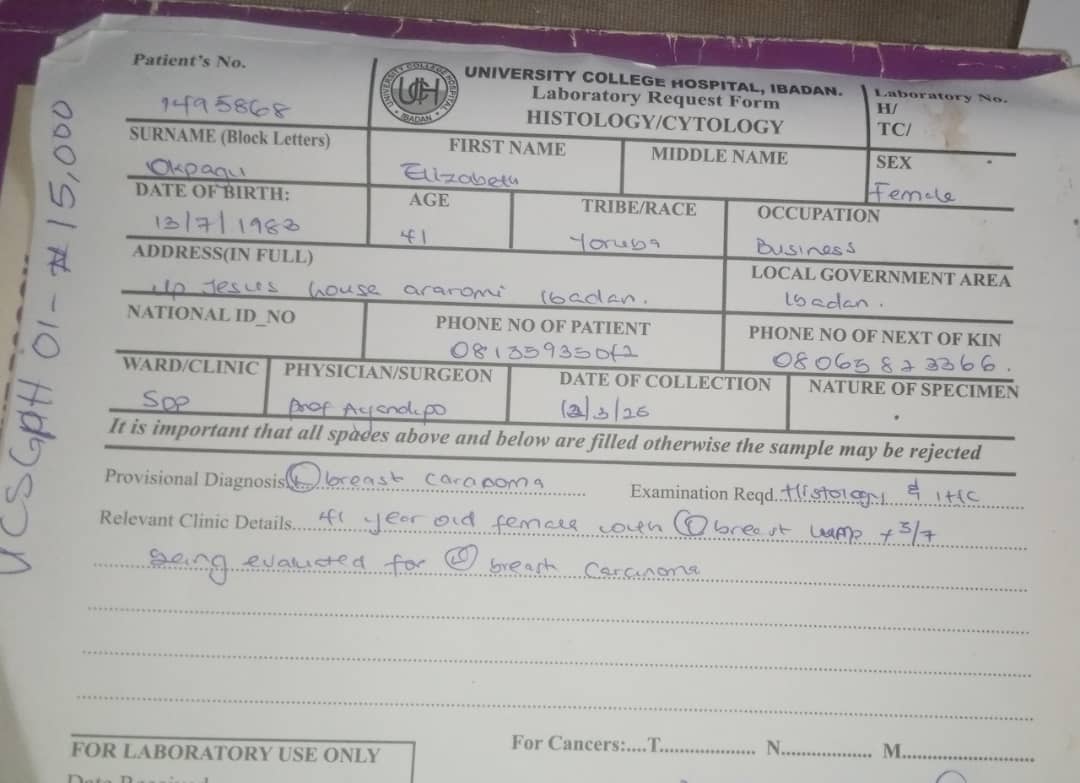 Patient's No.
1495868
UNIVERSITY COLLEGE HOSPITAL IBADAN
UCH
UNIVERSITY COLLEGE HOSPITAL, IBADAN.
Laboratory Request Form
HISTOLOGY/CYTOLOGY
Laboratory No.
H/
TC/
SURNAME (Block Letters)
Okpagu
FIRST NAME
Elizabeth
MIDDLE NAME
SEX
Female
DATE OF BIRTH:
13/7/1983
AGE
41
TRIBE/RACE
Yoruba
OCCUPATION
Business
ADDRESS(IN FULL)
Jesus house araromi Ibadan.
LOCAL GOVERNMENT AREA
Ibadan.
NATIONAL ID_NO
PHONE NO OF PATIENT
PHONE NO OF NEXT OF KIN
WARD/CLINIC
SOP
PHYSICIAN/SURGEON
Prof Ayandipo
DATE OF COLLECTION
NATURE OF SPECIMEN
It is important that all spades above and below are filled otherwise the sample may be rejected
Provisional Diagnosis breast carcinoma
Examination Reqd. Histology & IHC
Relevant Clinic Details.... 41 year old female with breast lump
being evaluated for breast Carcinoma
For Cancers:....T.................... N.................. M..........................
FOR LABORATORY USE ONLY
UCSGPH 01 - ₦15,000